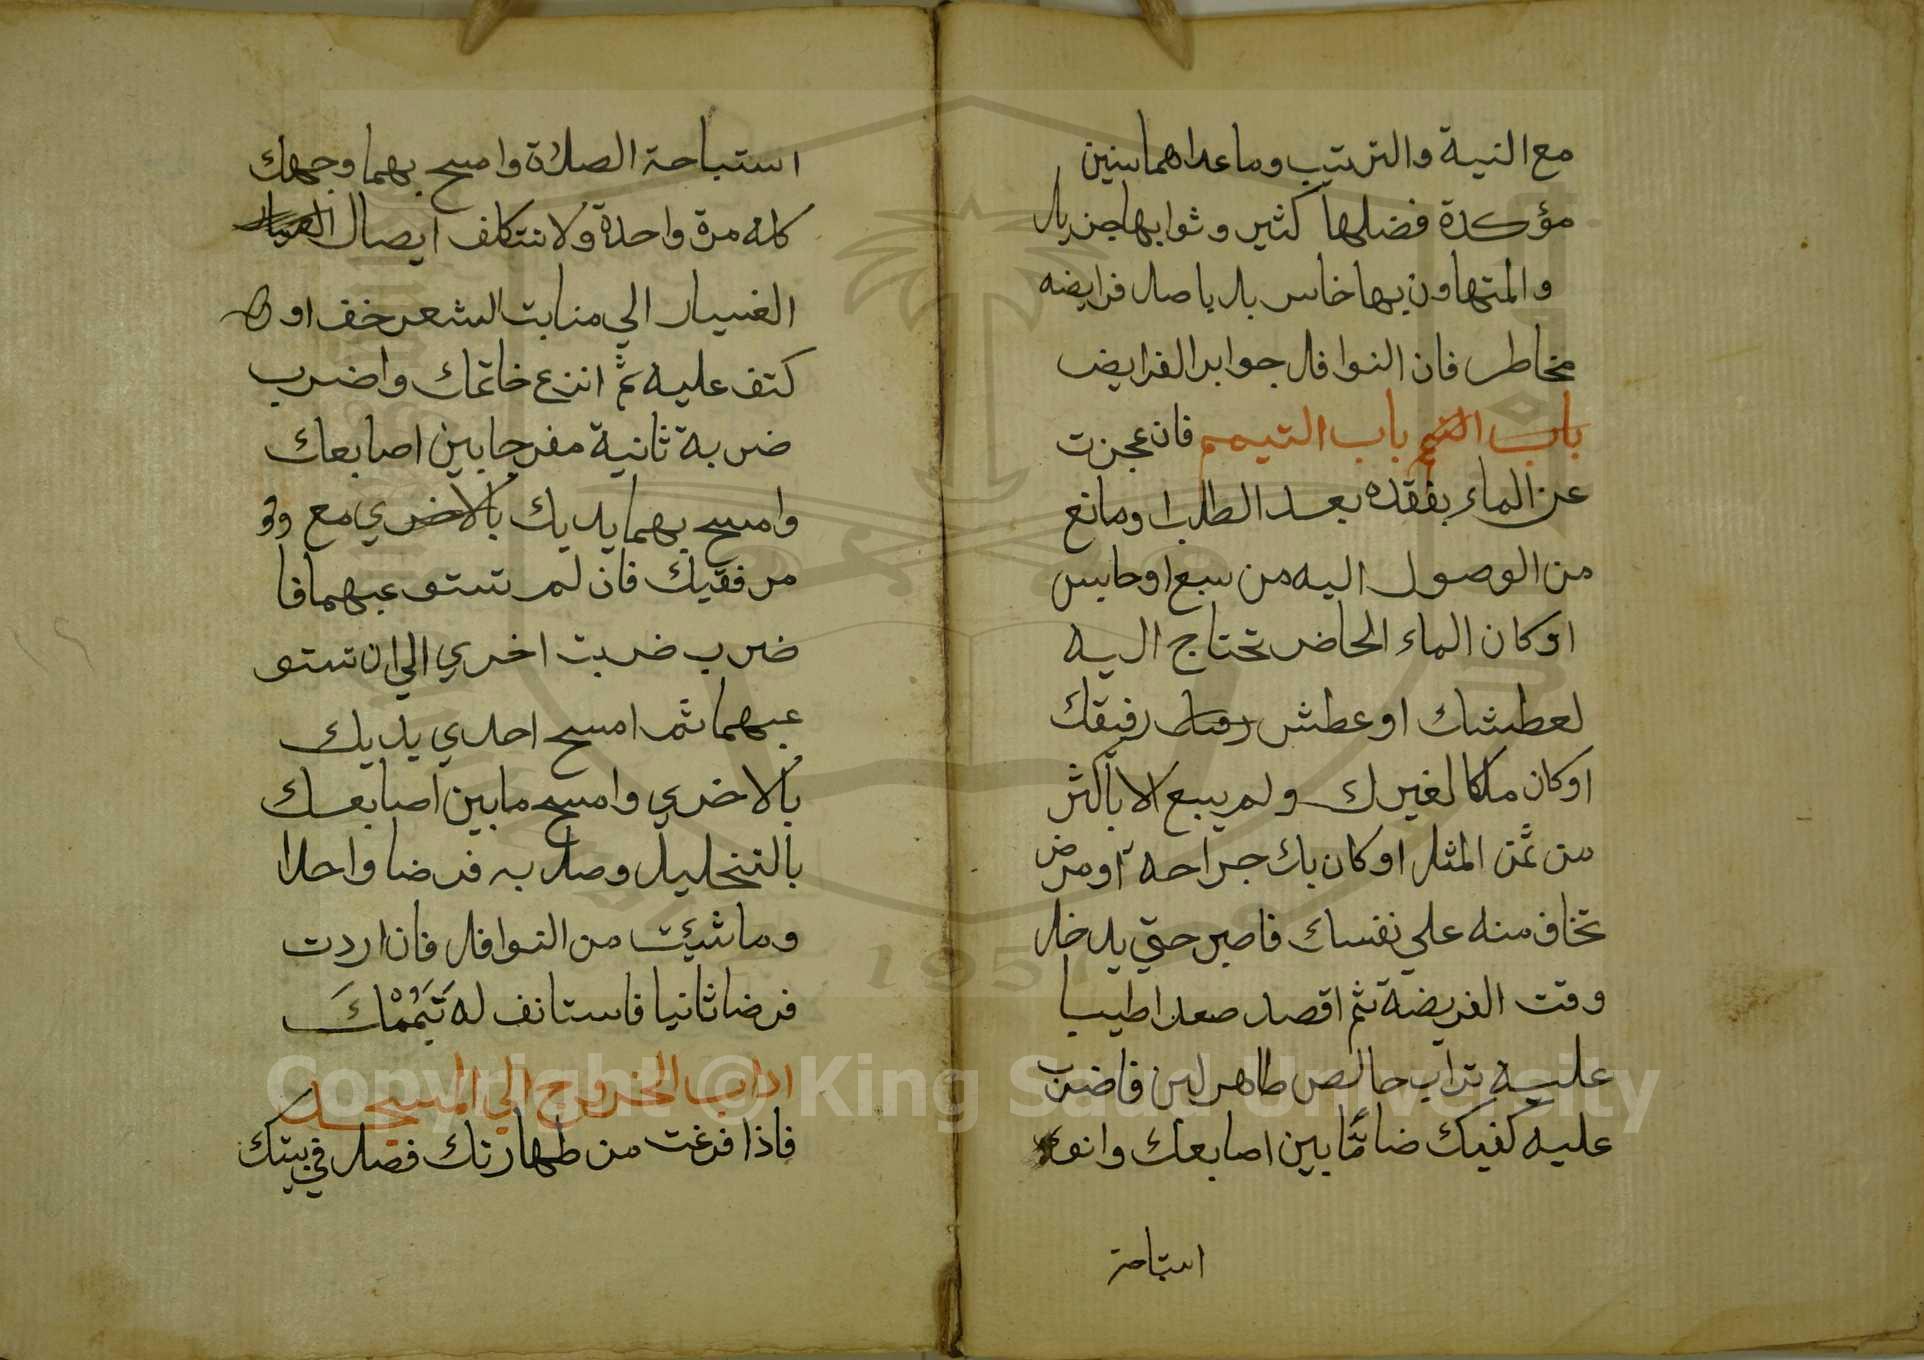 مع النية والترتيب وما عداهما سنن
مؤكدة فضلها كثير وثوابها جزيل
والمتهاون بها خاسر بل باصل فرايضه
مخاطر فان النوافل جوابر الفرايض
باب التيمم باب التيمم فان عجزت
عن الماء بفقده بعد الطلب او مانع
من الوصول اليه من سبع او حابس
او كان الماء الحاضر تحتاج اليه
لعطشك او عطش رفيقك
او كان ملكا لغيرك ولم يبع الا باكثر
من ثمن المثل او كان بك جراحة او مرض
تخاف منه علي نفسك فاصبر حتي يدخل
وقت الفريضة ثم اقصد صعدا طيبا
عليه تراب خالص طاهر لين فاضرب
عليه كفيك ضاما بين اصابعك وانو
استباحة
استباحة الصلاة وامسح بهما وجهك
كله مرة واحدة ولا تتكلف ايصال
الغبار الي منابت الشعر خف او
كتف عليه ثم انزع خاتمك واضرب
ضربة ثانية مفرجا بين اصابعك
وامسح بهما يديك بالاخري مع
مرفقيك فان لم تستوعبهما فا
ضرب ضربت اخري الي ان تستو
عبهما ثم امسح احدي يديك
بالاخري وامسح ما بين اصابعك
بالتخليل وصل به فرضا واحدا
وما شيئت من النوافل فان اردت
فرضا ثانيا فاستانف له تيممك
اداب الخروج الي المسجد
فاذا فرغت من طهارتك فصل في بيتك
Copyright © King Saud University
1957